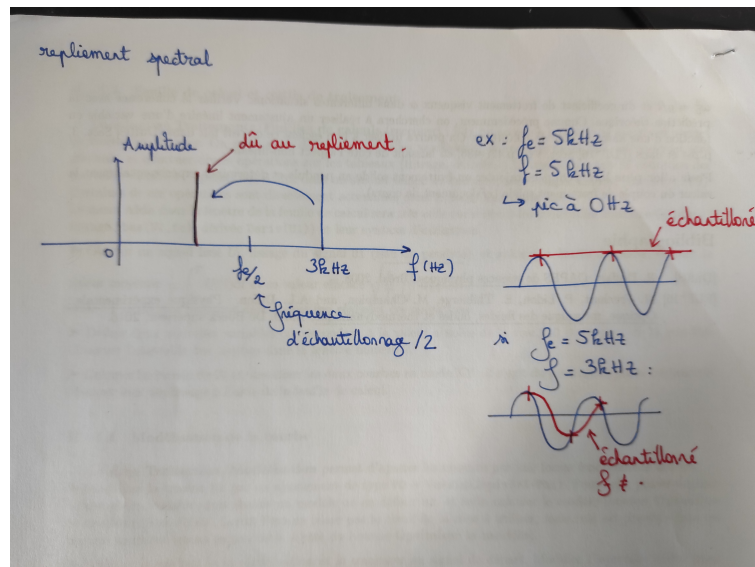 repliement spectral
Amplitude
dû au repliement.
0
fe/2
3kHz
f (Hz)
fréquence
d'échantillonnage/2
ex : fe = 5kHz
f = 5kHz
↳ pic à 0Hz
échantilloné
si fe = 5kHz
f = 3kHz :
échantilloné
f ≠.